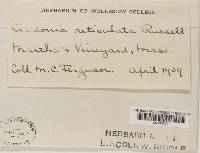 HERBARIUM OF WELLESLEY COLLEGE
Cladonia reticulata Russell
Martha's Vineyard, Mass.
Coll. M. C. Ferguson. April 1909
HERBARIUM
LINCOLN W. RIDDLE